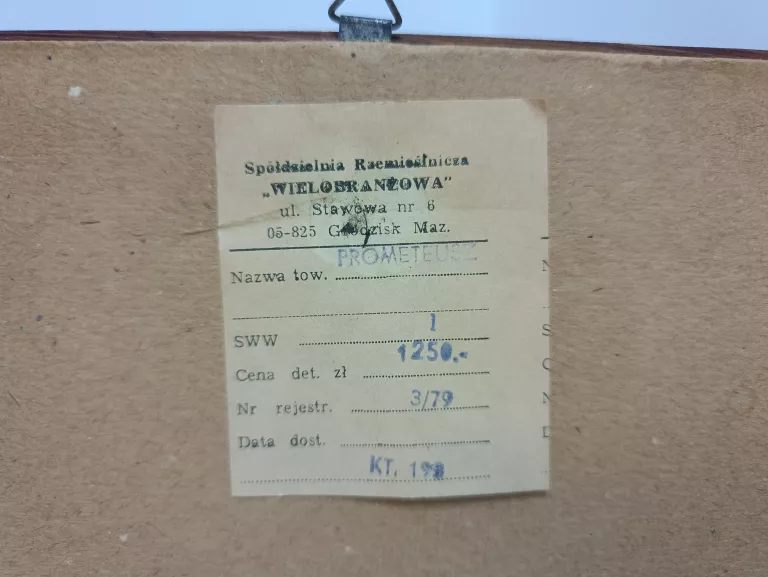 Spółdzielnia Rzemieślnicza
„WIELOBRANŻOWA"
ul. Stawowa nr 6
05-825 Grodzisk Maz.
Nazwa tow. PROMETEUSZ
SWW 1
Cena det. zł 1250.-
Nr rejestr. 3/79
Data dost.
KT. 198
N
S
C
N
D